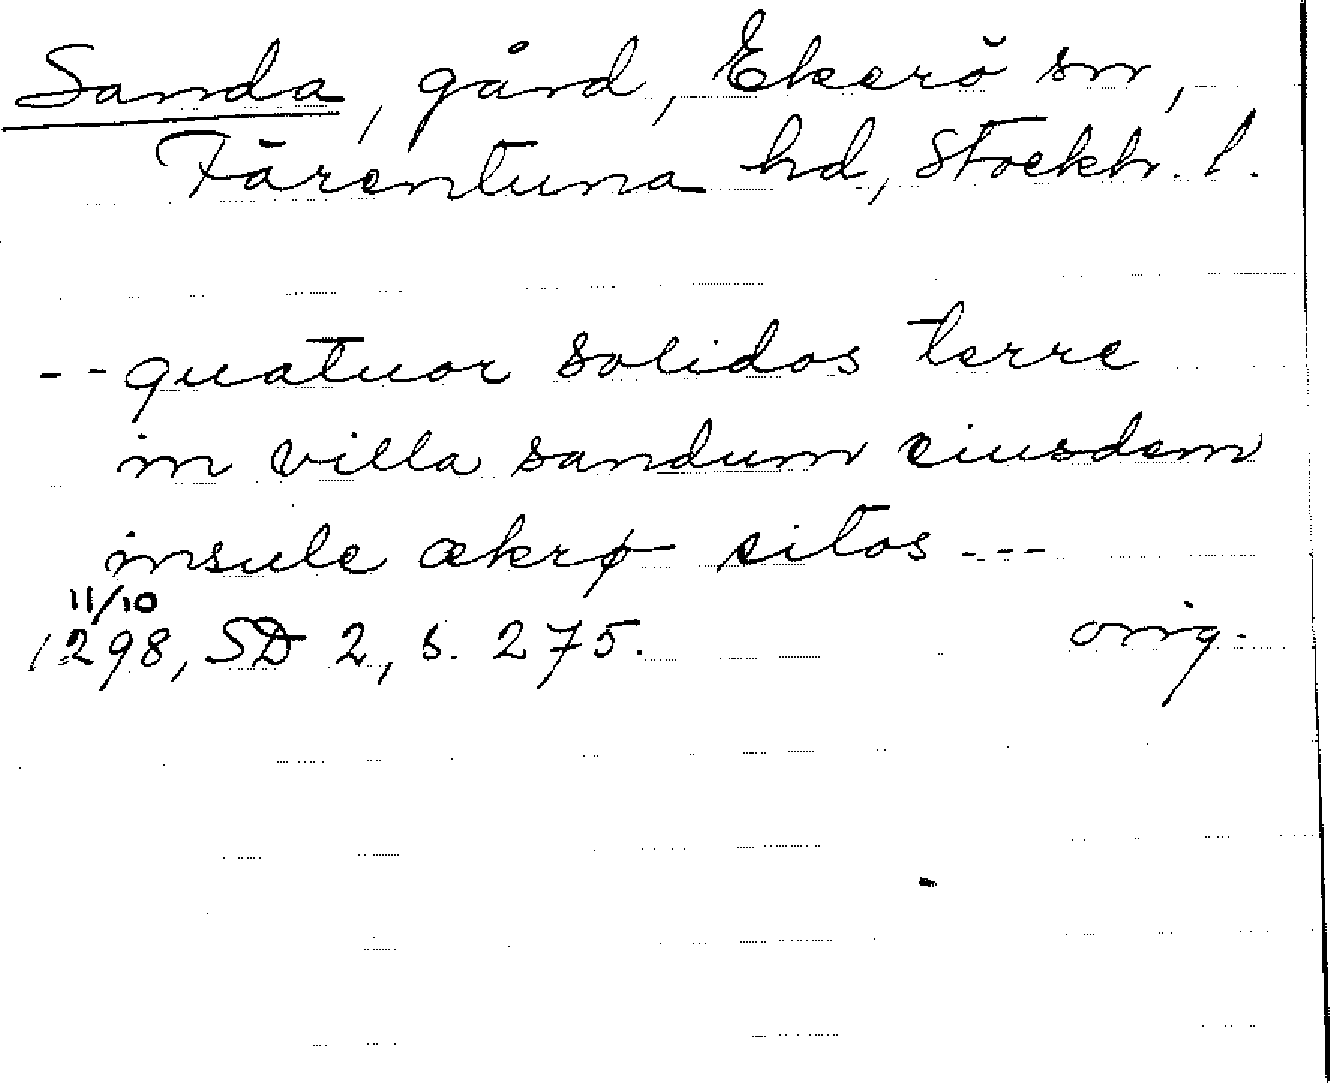 Sanda, gård, Ekerö sn,
Färentuna hd, Stockh. l.
-- quatuor solidos terre
in villa sandum eiusdem
insule økrø sitos ---
11/10
1298, SD 2, s. 275. orig.